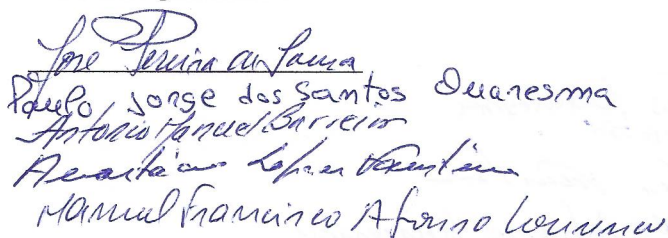 José Pereira de Sousa
Paulo Jorge dos Santos Quaresma
António Manuel Barreiros
Lopes
Manuel Francisco Afonso Lourenço